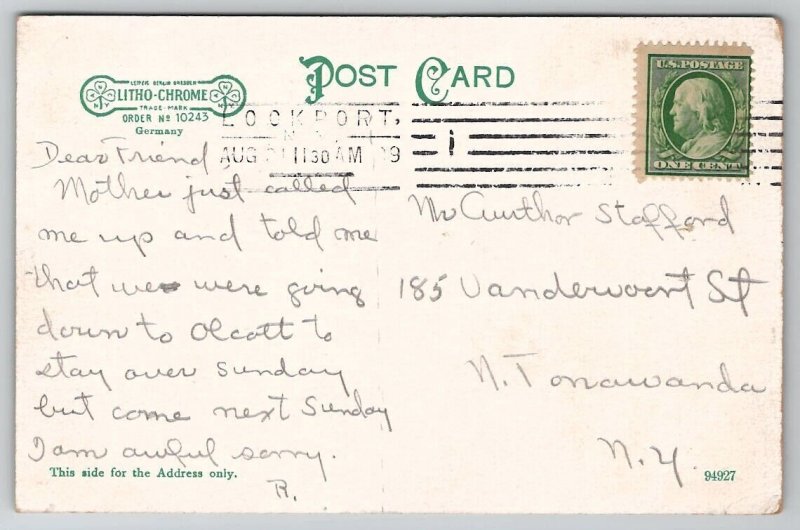 POST CARD
LEIPZIG BERLIN DRESDEN
LITHO-CHROME
TRADE MARK
ORDER No 10243
Germany
U.S. POSTAGE
ONE CENT
LOCKPORT,
N.Y.
AUG 11 30 AM 09
Dear Friend
Mother just called
me up and told me
that we were going
down to Olcott to
stay over Sunday
but come next Sunday
I am awful sorry.
R.
Mr Aurthor Stafford
185 Vandervoort St
N. Tonawanda
N.Y.
This side for the Address only.
94927